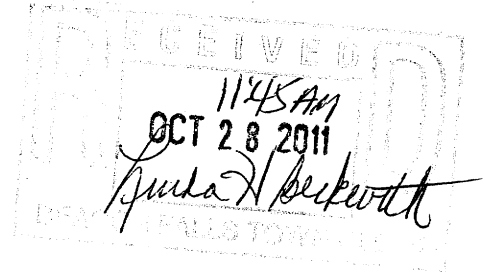 RECEIVED
11:45 AM
OCT 28 2011
Linda H Beckwith
FALLS TOWN